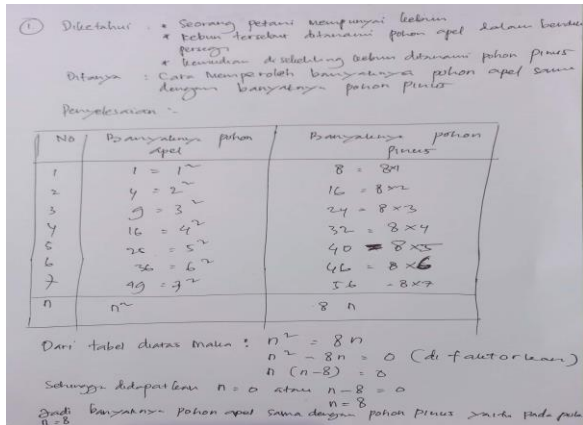 ① Diketahui : • Seorang petani mempunyai kebun
* Kebun tersebut ditanami pohon apel dalam bentuk
persegi
* kemudian di sekeliling kebun ditanami pohon Pinus
Ditanya : Cara memperoleh banyaknya pohon apel sama
dengan banyaknya pohon Pinus
Penyelesaian :
No Banyaknya pohon apel Banyaknya pohon Pinus
1 1 = 1² 8 = 8×1
2 4 = 2² 16 = 8×2
3 9 = 3² 24 = 8×3
4 16 = 4² 32 = 8×4
5 25 = 5² 40 = 8×5
6 36 = 6² 46 = 8×6
7 49 = 7² 56 = 8×7
n n² 8 n
Dari tabel diatas maka : n² = 8n
n² - 8n = 0 (di faktorkan)
n (n-8) = 0
Sehingga didapatkan n = 0 atau n - 8 = 0
n = 8
Jadi banyaknya pohon apel sama dengan pohon pinus yaitu pada
n = 8